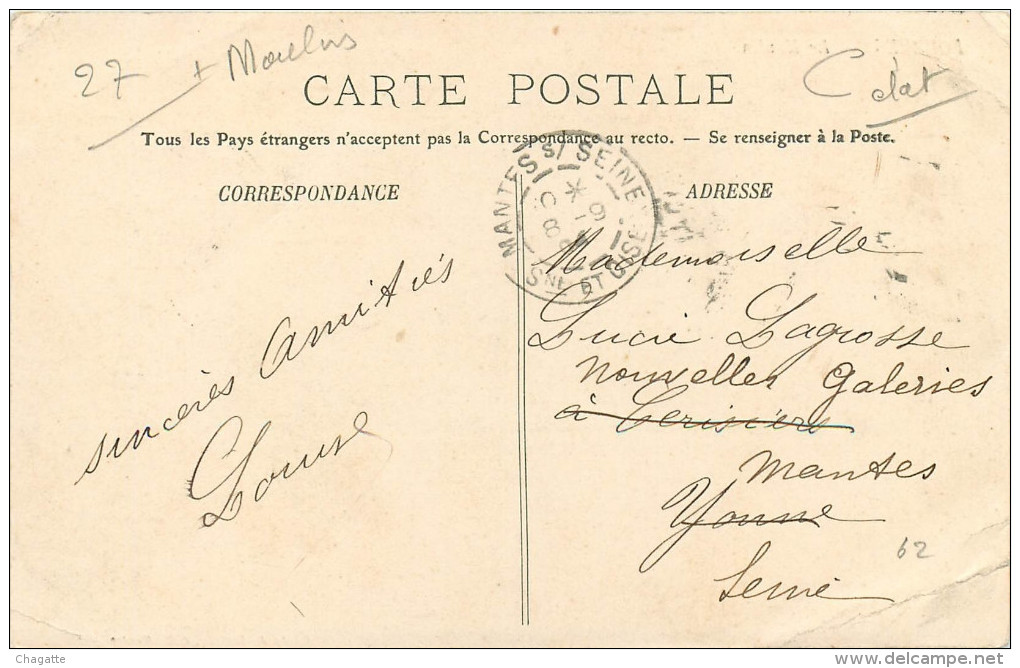 27 + Moulins
C dat
CARTE POSTALE
Tous les Pays étrangers n'acceptent pas la Correspondance au recto. — Se renseigner à la Poste.
CORRESPONDANCE
ADRESSE
MANTES s/ SEINE
SNE ET OISE
sincères Amitiés
Louise
Mademoiselle
Lucie Lagrosse
Nouvelles Galeries
à Cerisiers
Mantes
Yonne
Seine
62
Chagatte
www.delcampe.net